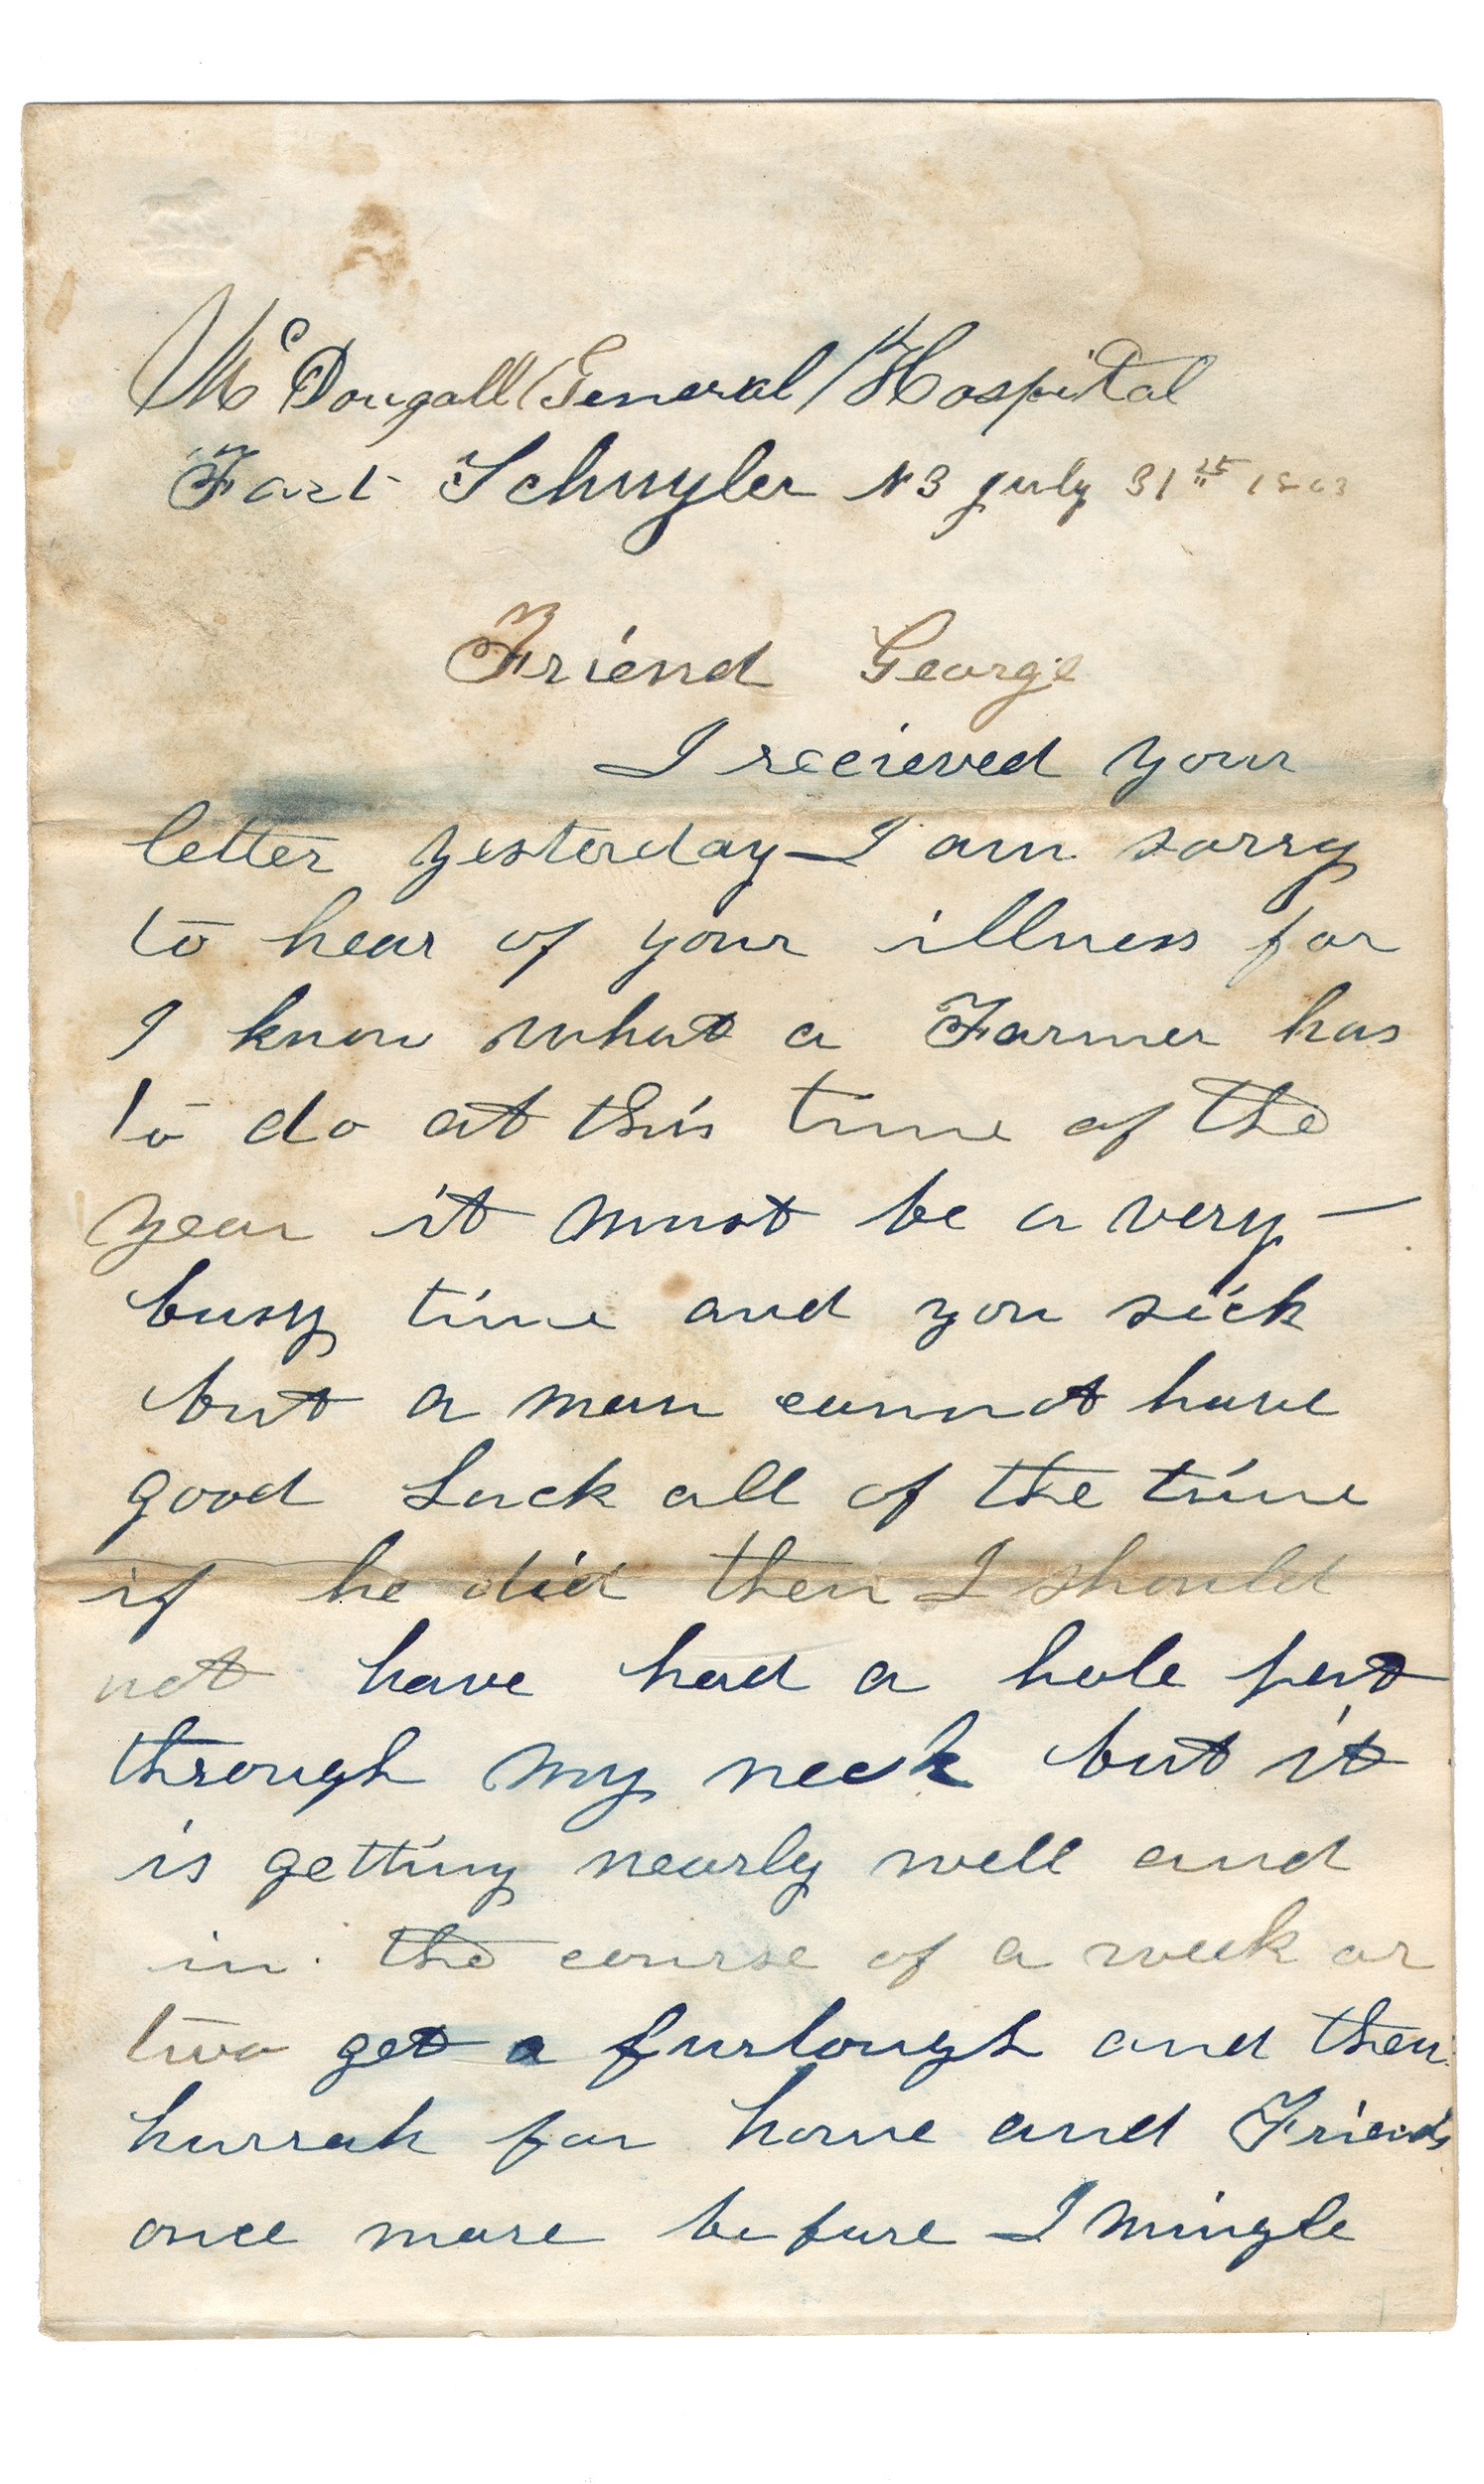 Mc Dougall General Hospital
Fort Schuyler N3 july 31st 1863
Friend George
I recieved your
letter yesterday I am sorry
to hear of your illness for
I know what a Farmer has
to do at this time of the
year it must be a very –
busy time and you sick
but a man cannot have
good Luck all of the time
if he did then I should
not have had a hole put
through my neck but it
is getting nearly well and
in the course of a week or
two get a furlough and then
hurrah for home and Friends
once more before I mingle